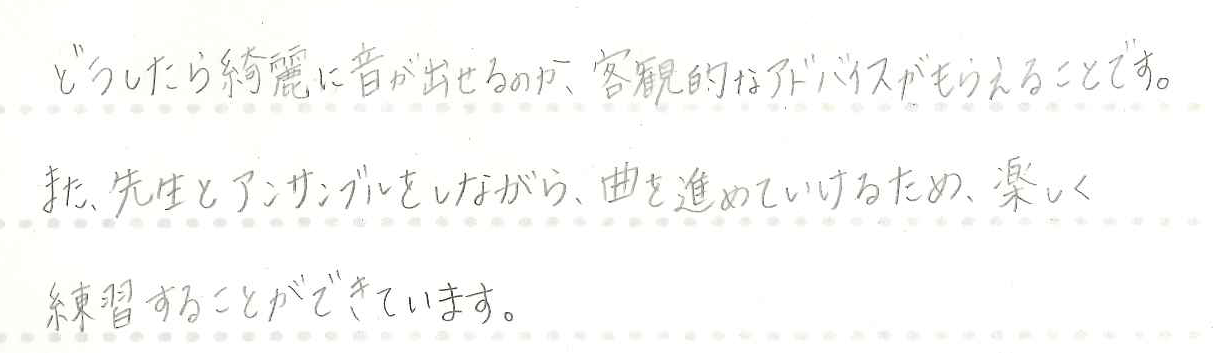 どうしたら綺麗に音が出せるのか、客観的なアドバイスがもらえることです。
また、先生とアンサンブルをしながら、曲を進めていけるため、楽しく
練習することができています。